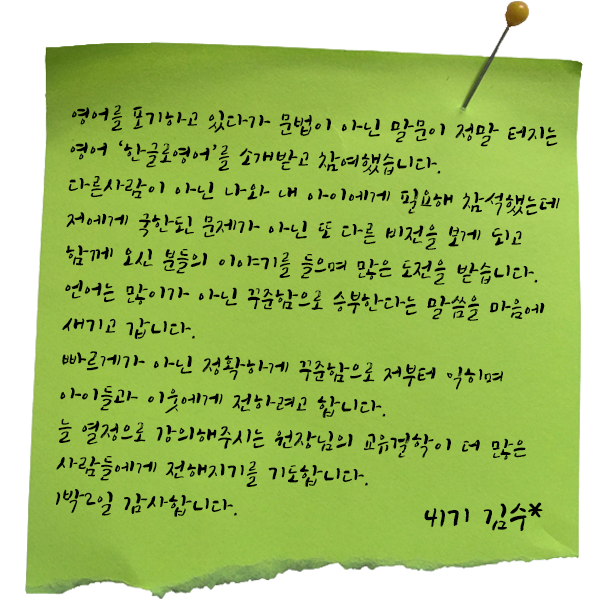 영어를 포기하고 있다가 문법이 아닌 말문이 정말 터지는
영어 '한글로영어'를 소개받고 참여했습니다.
다른사람이 아닌 나와 내 아이에게 필요해 참석했는데
저에게 국한된 문제가 아닌 또 다른 비전을 보게 되고
함께 오신 분들의 이야기를 들으며 많은 도전을 받습니다.
언어는 많이가 아닌 꾸준함으로 승부한다는 말씀을 마음에
새기고 갑니다.
빠르게가 아닌 정확하게 꾸준함으로 저부터 익히며
아이들과 이웃에게 전하려고 합니다.
늘 열정으로 강의해주시는 원장님의 교육철학이 더 많은
사람들에게 전해지기를 기도합니다.
1박2일 감사합니다.
41기 김수*